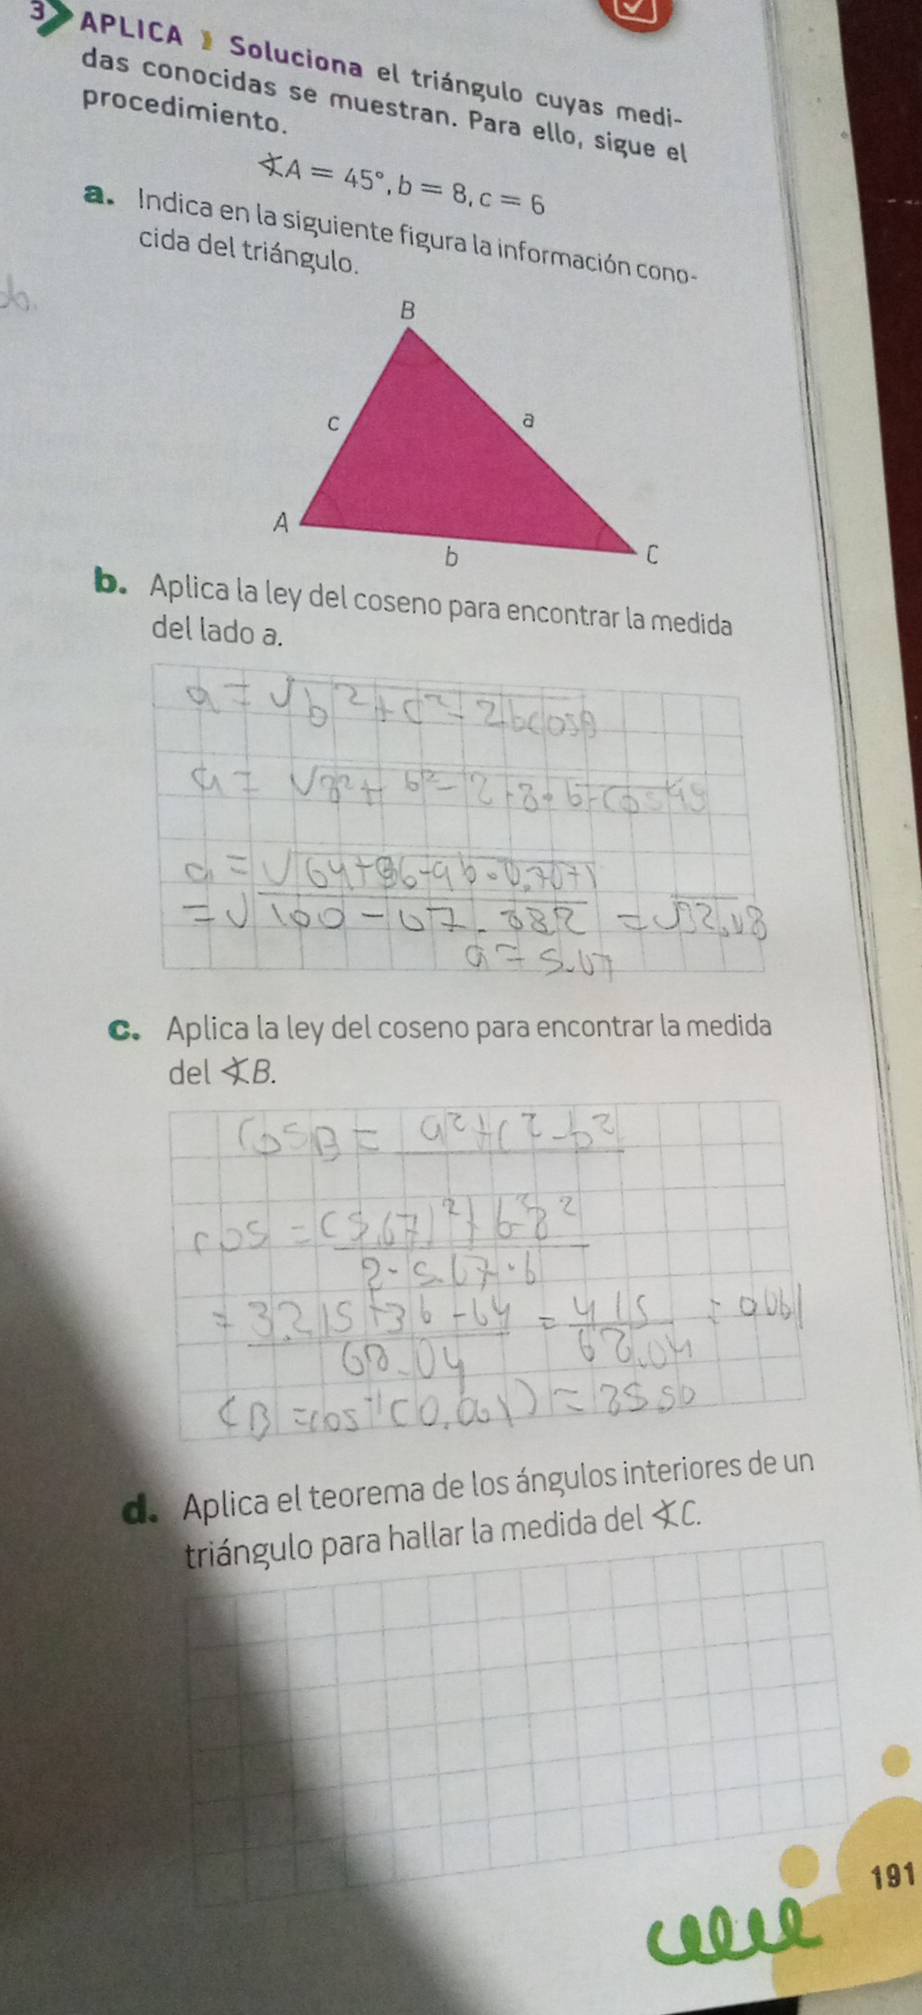 3 APLICA Soluciona el triángulo cuyas medi-
das conocidas se muestran. Para ello, sigue el
procedimiento.
∡A = 45°, b = 8, c = 6
a. Indica en la siguiente figura la información cono-
cida del triángulo.
B
c
a
A
b
C
b. Aplica la ley del coseno para encontrar la medida
del lado a.
a = √b² + c² - 2bcosA
a = √8² + 6² - 2 · 8 · 6 · cos 45
a = √64 + 36 - 96 · 0,7071
= √100 - 67.882 = √32,18
a = 5.67
c. Aplica la ley del coseno para encontrar la medida
del ∡B.
cosB = a² + c² - b²
cos = (5,67)² + 6² - 8²
2 · 5.67 · 6
= 32.15 + 36 - 64 = 4.15 = 0.061
68.04 68.04
d. Aplica el teorema de los ángulos interiores de un
triángulo para hallar la medida del ∡C.
191